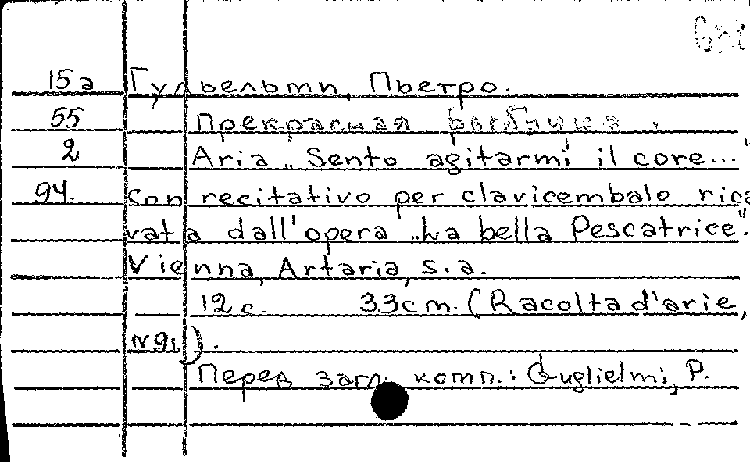 15а Гульельми, Пьетро.
55 Прекрасная рыбачка.
2 Aria „Sento agitarmi il core..."
94. con recitativo per clavicembalo rica
vata dall'opera „La bella Pescatrice".
Vienna, Artaria, s.a.
12 с. 33cm. (Racolta d'arie,
N91).
Перед загл. комп.: Guglielmi, P.